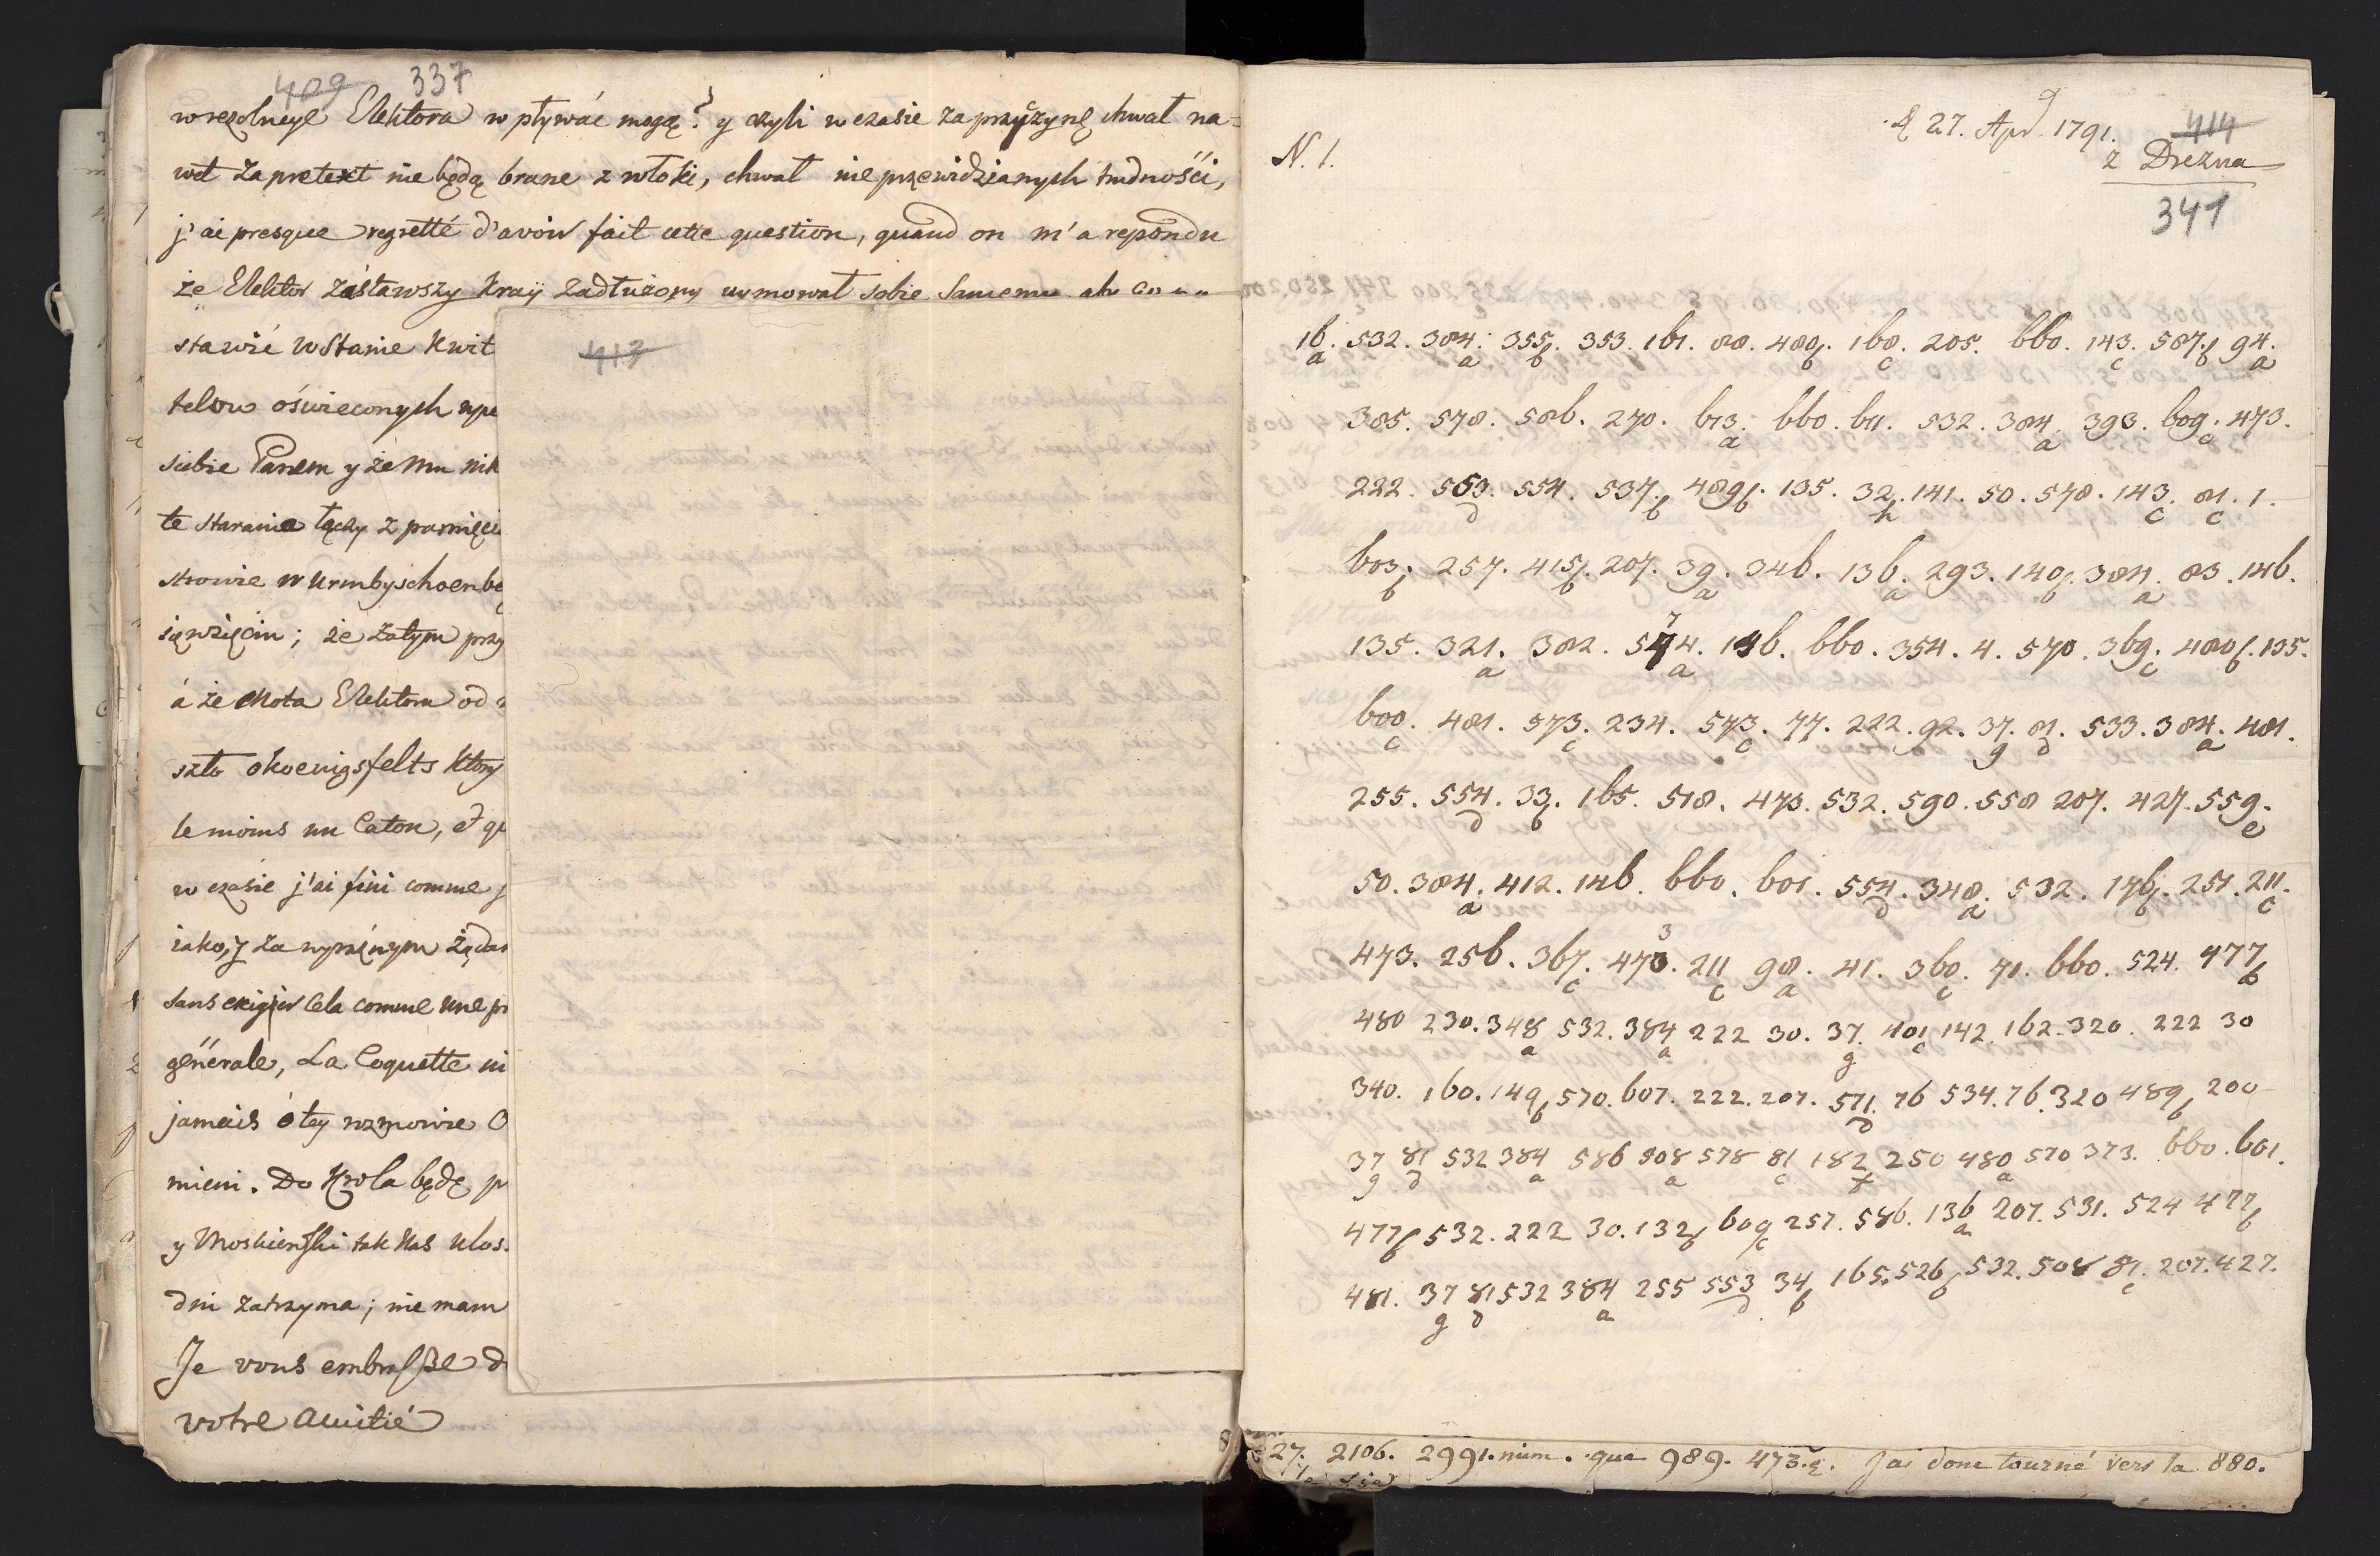 409 337
w rezolucye Elektora wpływać mogą? y czyli w czasie za przyczynę chwał na=
wet za pretext nie będą brane z włoki, chwał nieprzewidzianych trudnośći,
j'ai presque regretté d'avoir fait cette question, quand on m'a repondu
że Elektor zástawszy Kray zadłużony uymował sobie samemu
stawić w Stanie Kwit
telow oświeconych
siebie Panem y że Mu nik
te staranie tęchy z pamięci
strowie w Urmbyschoenbe
sięwzięciu; że zatym przy
á że Cnota Elektora od
szło okoenigsfelts Ktory
le moins un Caton, et qu
w czasie j'ai fini comme j
iako, y za wyraźnym żądan
sans exigier cela comme une pr
générale, La Coquette ni
jamais o tey rozmowie O
mieni. Do Krola będę p
y Moskiewski tak Nas Klos.
dni zatrzyma; nie mam
Je vous embrasse d
votre Amitié
413
N. 1.
27. Apr. 1791.
414
z Drezna
341
16.a 532. 384.a 355.b 353. 161. 88. 480.b 160.c 205. 660. 143.c 587.b 94.a
385. 578. 586. 270. 613.a 660. 611. 532. 384.a 393. 609.c 473.
222. 553.d 554. 537.b 489.b 135. 32.h 141. 50. 578. 143.c 81.c 1.
603.b 257. 415.b 207. 39.a 346. 136.a 293. 140.b 384.a 83. 146.
135. 321.a 382. 574.a 146. 660. 354. 4. 570. 369.c 480.b 135.
600.c 481. 573.c 234. 573.c 77. 222. 92. 37.g 81.d 533. 384.a 481.
255. 554.d 33.b 165. 518. 473. 532. 590. 558 207. 427. 559.e
50. 384.a 412. 146. 660. 601. 554.d 348.a 532. 176.b 251. 211.c
473. 256. 367.c 473. 211c 98.a 41. 360.c 71. 660. 524. 477b
480 230. 348a 532. 384a 222 30. 37.g 401c 142. 162. 320. 222 30
340. 160. 149b 570. 607. 222. 207. 571.d 76 534. 76. 320 489b 200
37g 81d 532 384a 586 508a 578 81c 182x 250 480a 570 373. 660. 601.
477b 532. 222 30. 132b 609c 257. 586. 136a 207. 531. 524 477b
481. 37g 81d 532 384a 255 553d 34b 165. 526b 532. 508 81.c 207. 427.
27. 2106. 2991. num. que 989. 473. J'ai donc tourné vers la 880.